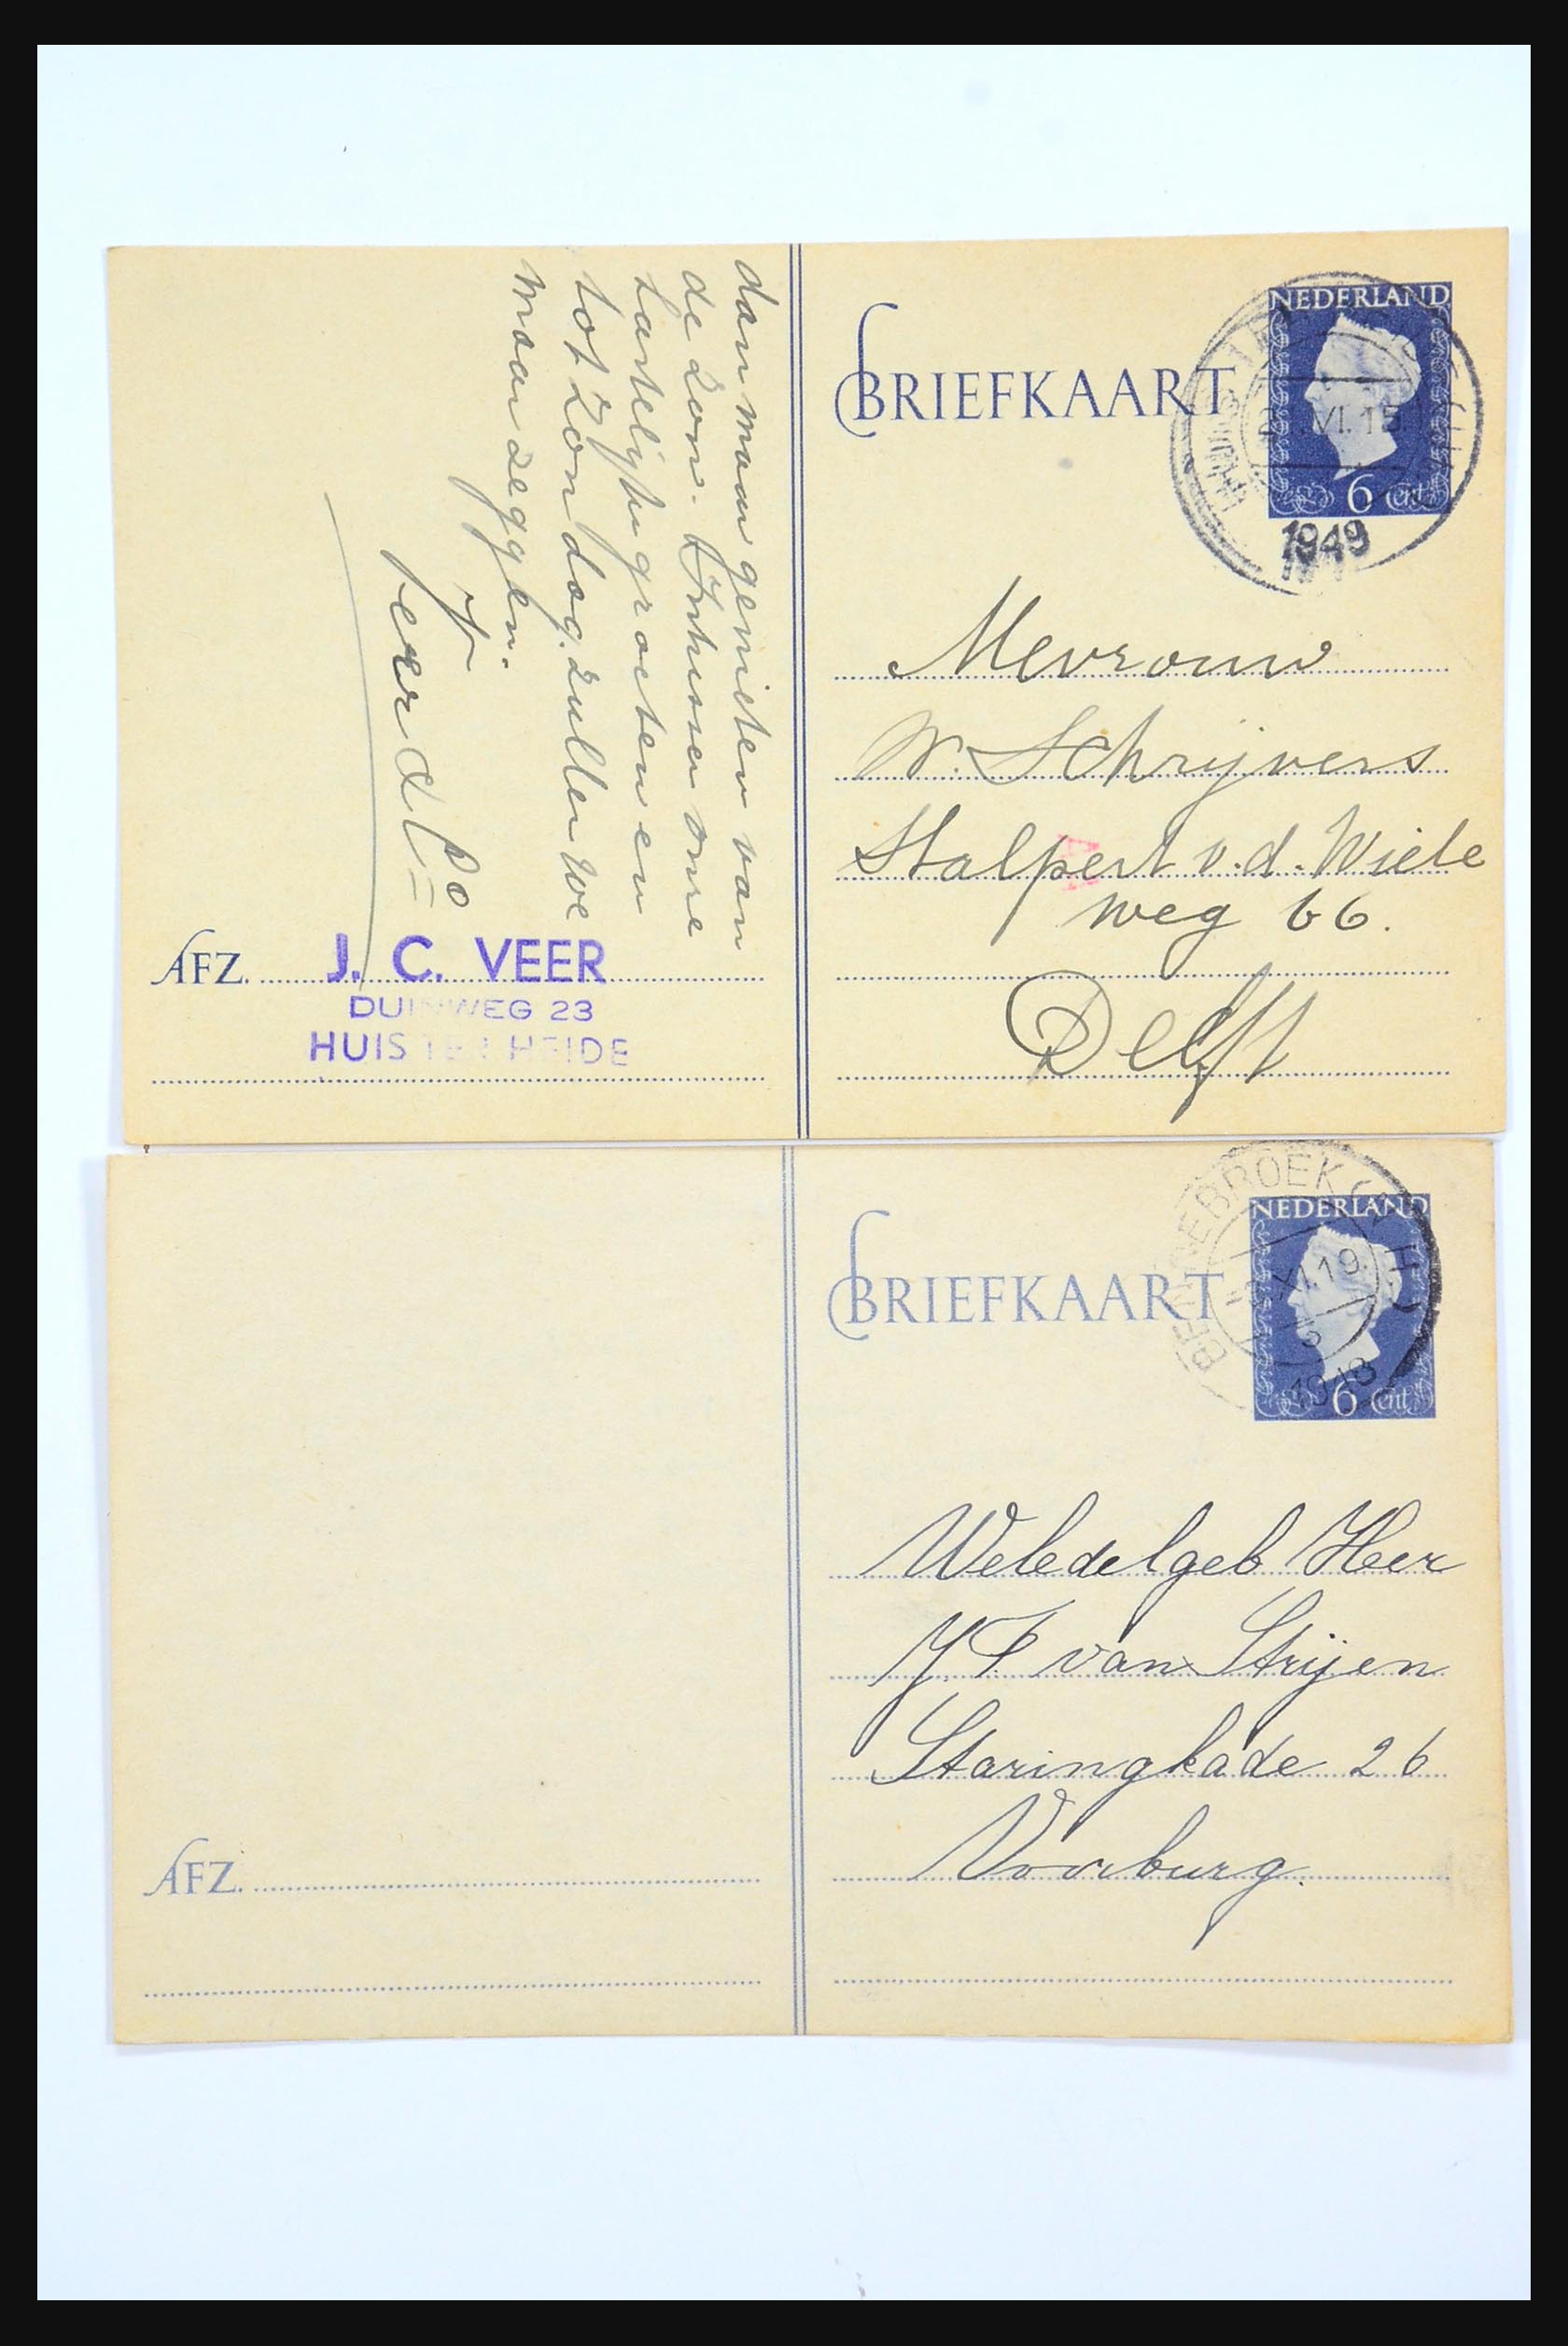 dan maar genieten van
de zon. Intussen onze
hartelijke groeten en
tot Zondag. zullen we
maar zeggen.
AFZ. J. C. VEER
DUINWEG 23
HUIS TER HEIDE
BRIEFKAART
NEDERLAND
VI. 15
6 Cent
1949
Mevrouw
W. Schrijvers
Stalpert v.d. Wiele
weg 66.
Delft
AFZ.
BRIEFKAART
NEDERLAND
BENNEBROEK (Z.H.)
XI. 19
1948
6 Cent
Weledelgeb Heer
J. P. van Strijen
Staringkade 26
Voorburg.